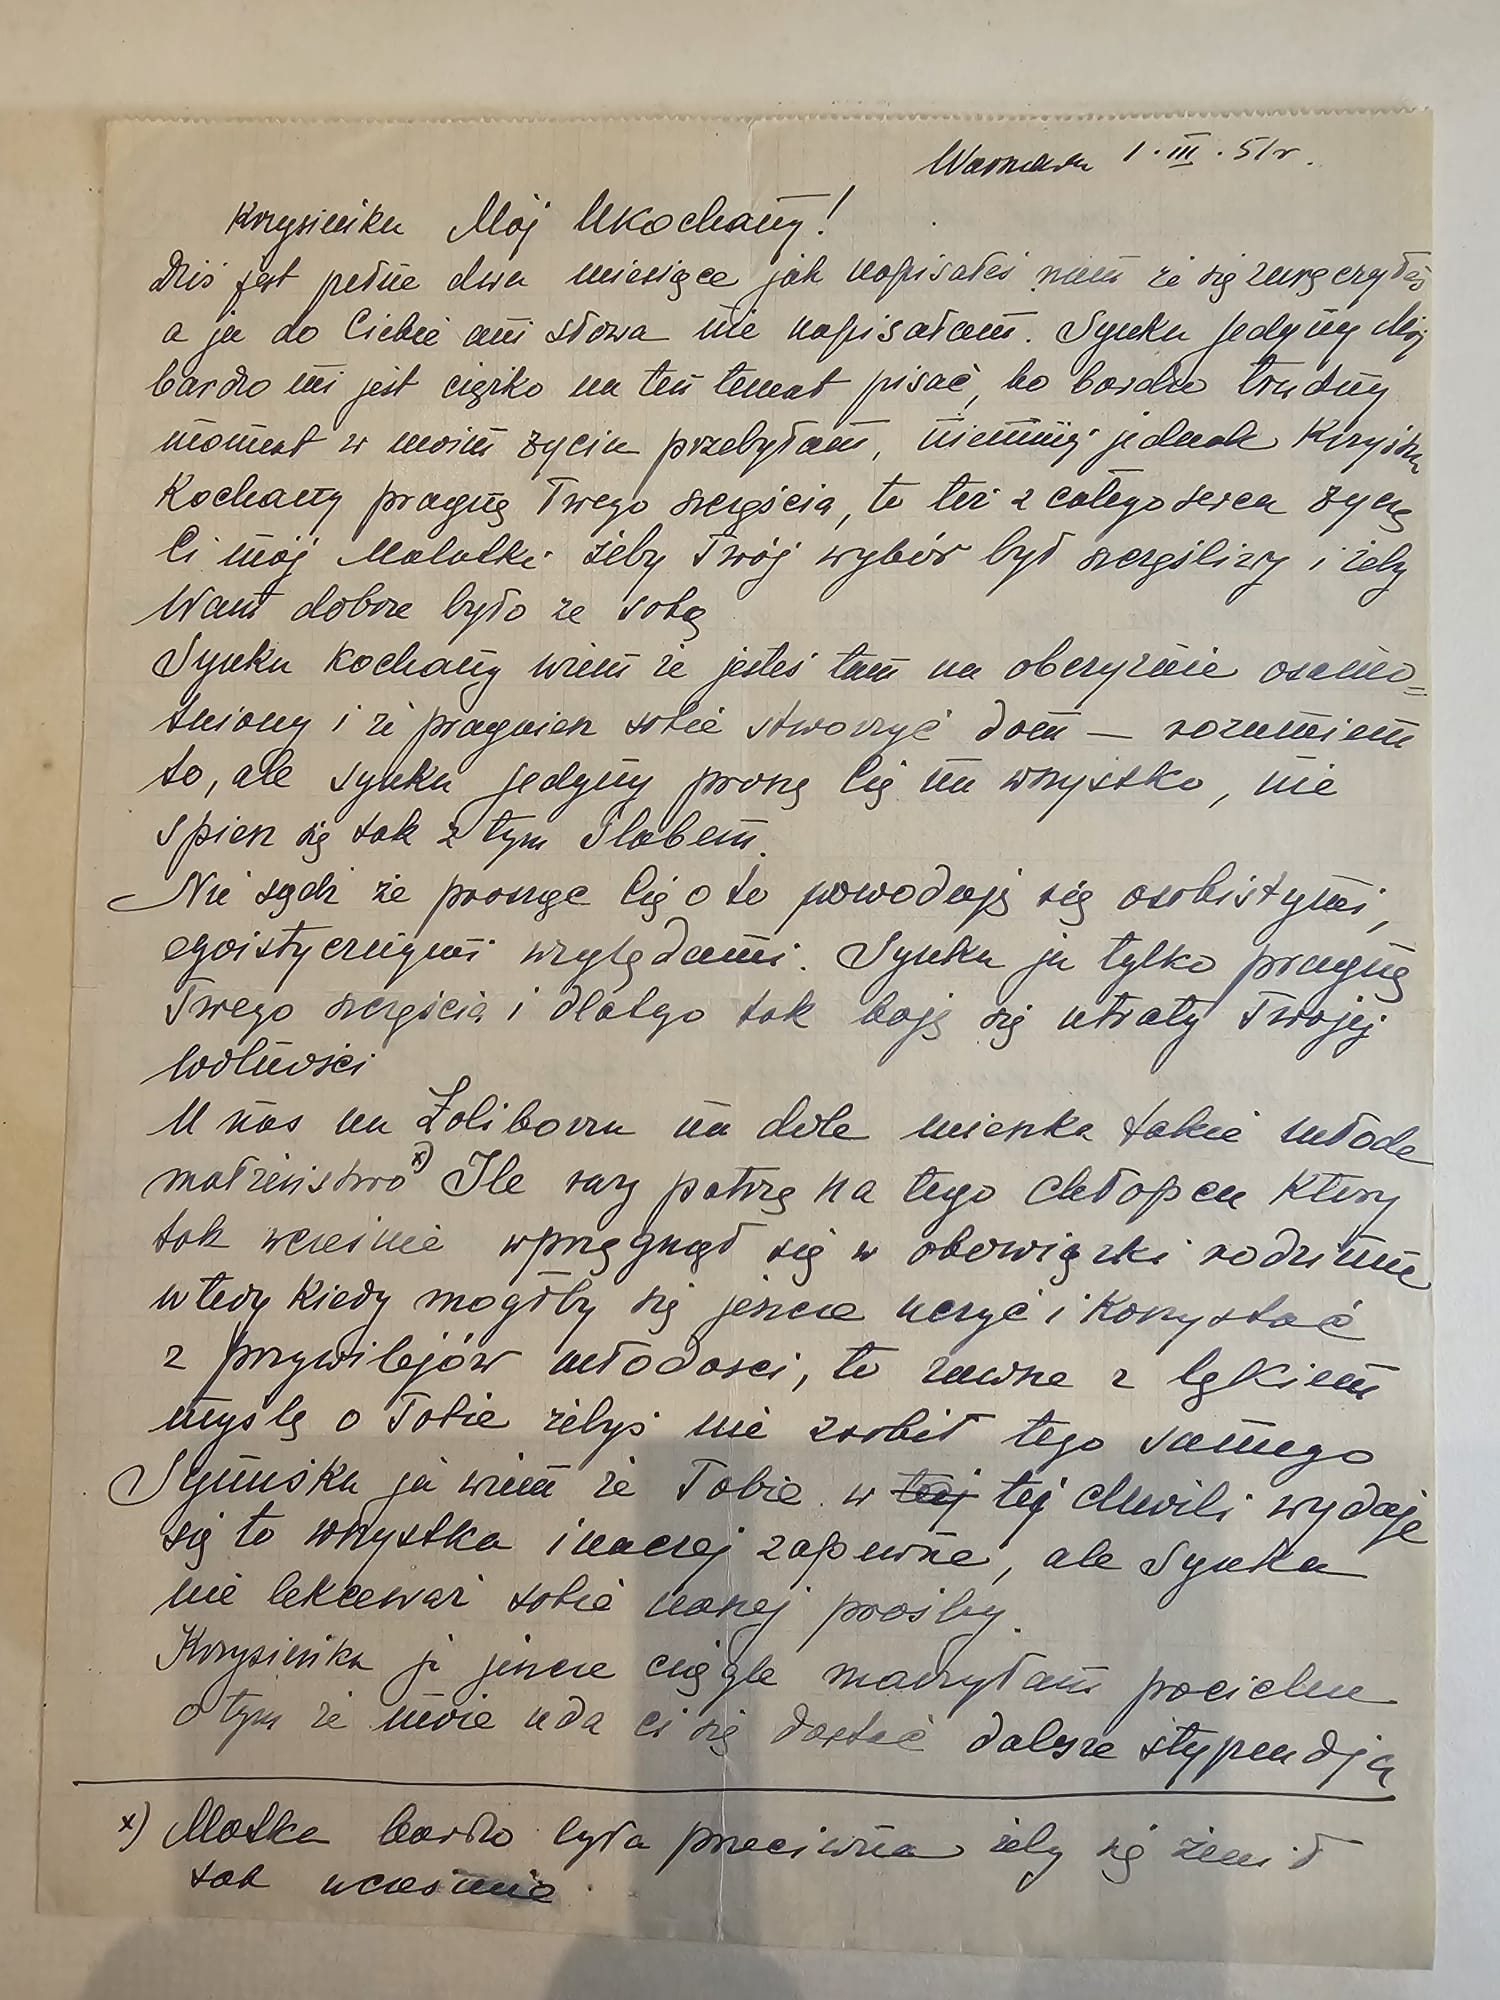 Warszawa 1.III.51r.
Krzysieńku Mój Ukochany!
Dziś jest pełne dwa miesiące jak napisałeś nam że się zaręczyłeś
a ja do Ciebie ani słowa nie napisałam. Synku jedyny Mój
bardzo mi jest ciężko na ten temat pisać, bo bardzo trudny
moment w moim życiu przebyłam, niemniej jednak Krzyśku
Kochany pragnę Twego szczęścia, to też z całego serca życzę
Ci mój Malutki żeby Twój wybór był szczęśliwy i żeby
Wam dobrze było ze sobą
Synku Kochany wiem że jesteś tam na obczyźnie osamo=
tniony i że pragniesz sobie stworzyć dom — rozumiem
to, ale synku jedyny proszę Cię na wszystko, nie
spiesz się tak z tym Ślubem.
Nie sądź że prosząc Cię o to powoduję się osobistymi,
egoistycznymi względami. Synku ja tylko pragnę
Twego szczęścia i dlatego tak boję się utraty Twojej
Wolności
U nas na Żoliborzu na dole mieszka takie młode
małżeństwo x) Ile razy patrzę na tego chłopca który
tak wcześnie wprzągnął się w obowiązki rodzinne
wtedy kiedy mógłby się jeszcze uczyć i Korzystać
z przywilejów młodości, to zawsze z lękiem
myślę o Tobie żebyś nie zrobił tego samego
Synuśku ja wiem że Tobie w tej tej chwili wydaje
się to wszystko inaczej zapewne, ale Synku
nie lekceważ sobie naszej prośby.
Krzysieńku ja jeszcze ciągle marzyłam pocichu
o tym że może uda ci się dostać dalsze stypendja
x) Matka bardzo była przeciwna żeby się żenił
tak wcześnie